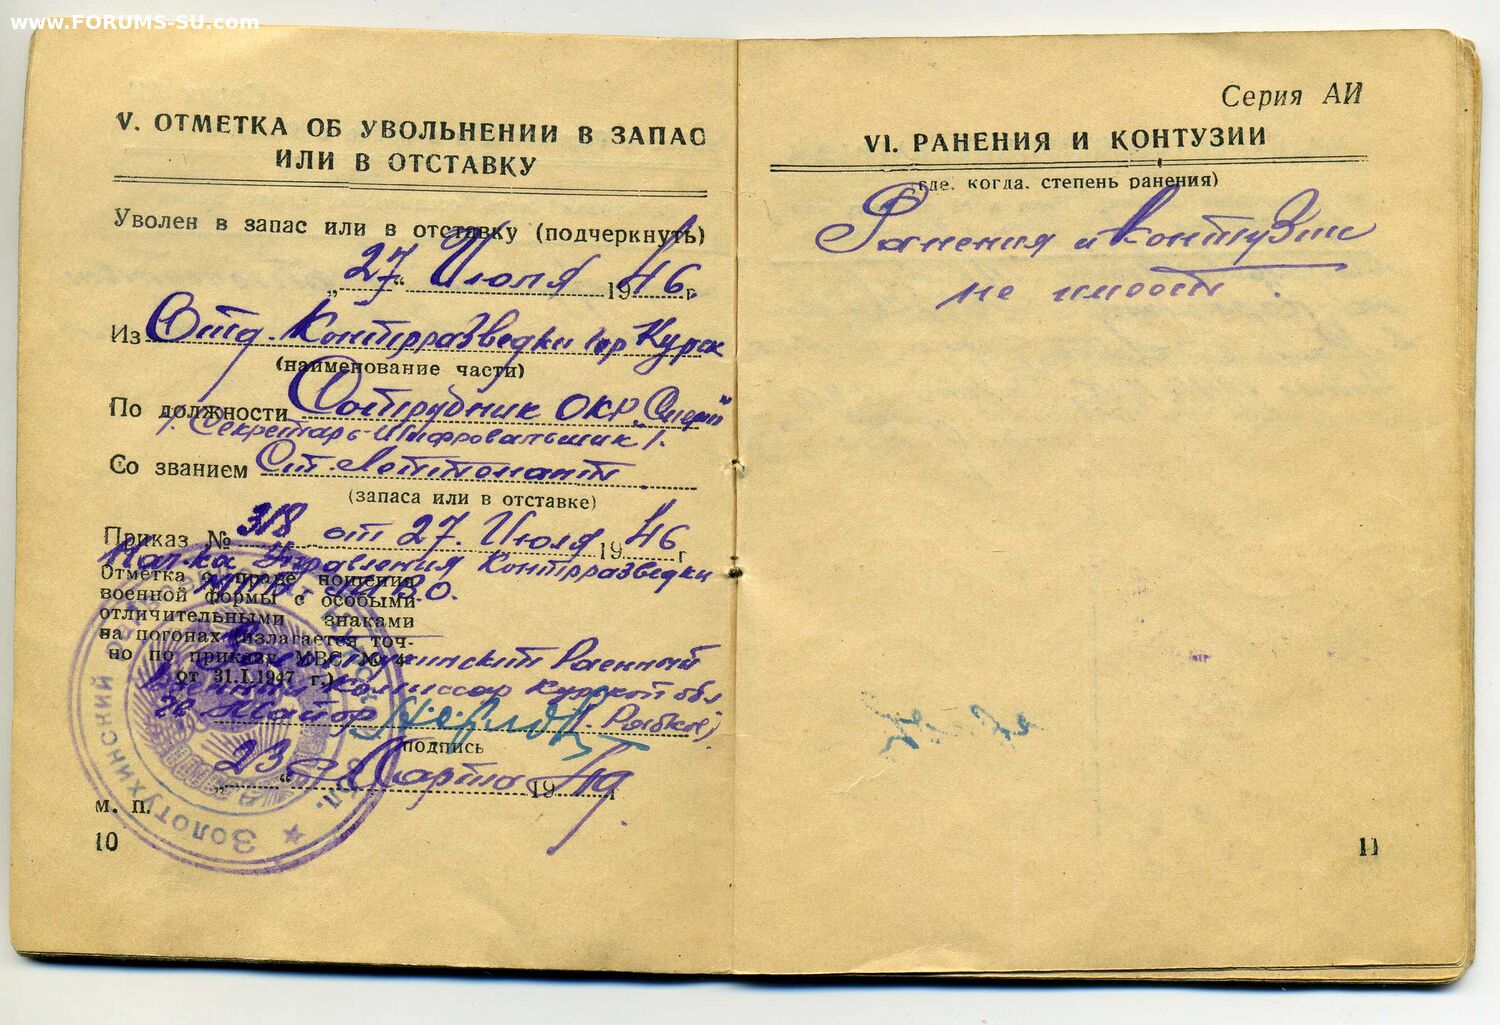 www.FORUMS-SU.com
V. ОТМЕТКА ОБ УВОЛЬНЕНИИ В ЗАПАС
ИЛИ В ОТСТАВКУ
Уволен в запас или в отставку (подчеркнуть)
„27“ Июля 1946 г.
Из Отд. Контрразведки гор Курск
(наименование части)
По должности Сотрудник ОКР „Смерш"
/. Секретарь-Шифровальщик /.
Со званием Ст. Лейтенант
(запаса или в отставке)
Приказ № 318 от 27. Июля 1946 г
Нач-ка Управления Контрразведки
Отметка о праве ношения
военной формы с особыми
отличительными знаками
на погонах (излагается точ-
но по приказу МВС № 4
от 31.I.1947 г.)
Золотухинский Военный
Комиссар Курской обл
Майор
подпись
„23“ Марта 19 г
м. п.
10
Золотухинский
Серия АИ
VI. РАНЕНИЯ И КОНТУЗИИ
(где, когда, степень ранения)
Ранения и Контузии
не имеет
11